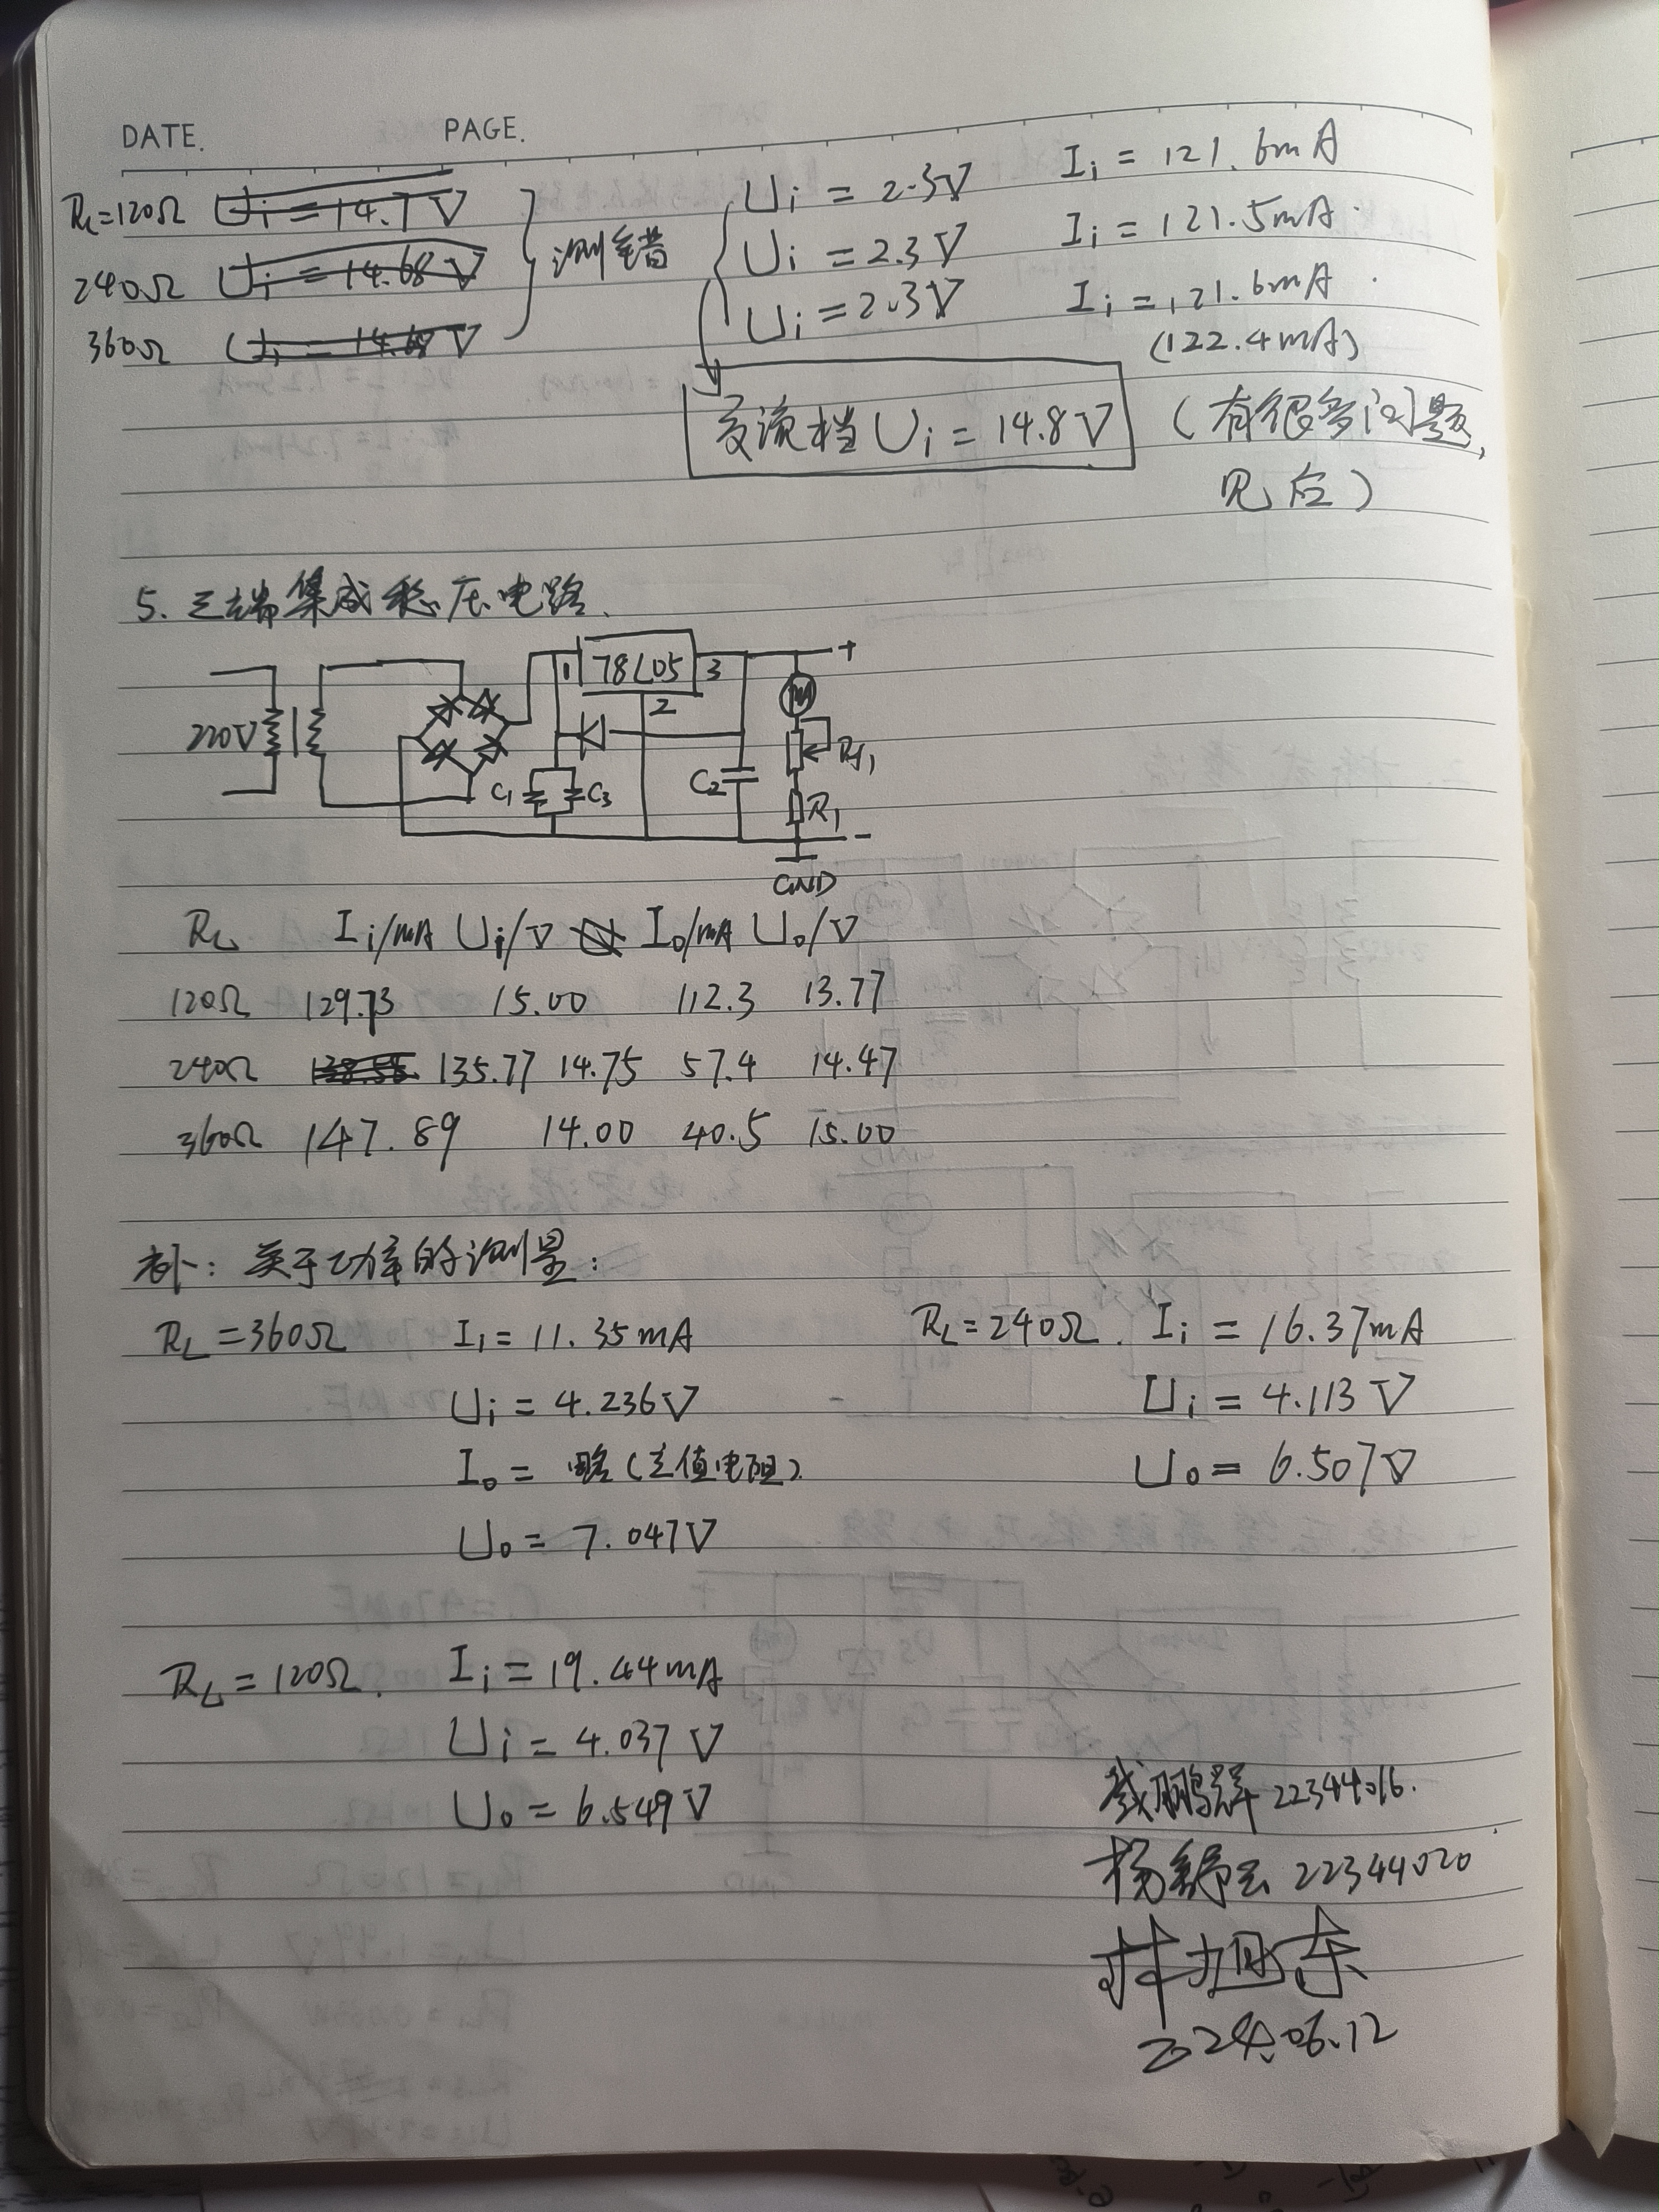 DATE. PAGE.
R_L=120Ω U_i = 14.7 V
240Ω U_i = 14.68 V
360Ω U_i = 14.68 V
测错
U_i = 2.3V I_i = 121.6mA
U_i = 2.3V I_i = 121.5mA
U_i = 2.3V I_i = 121.6mA
(122.4mA)
交流档 U_i = 14.8V (有很多问题,
见后)
5. 三端集成稳压电路.
1 78L05 3 +
2 M
220V R_f1
C1 C3 C2 R1
-
GND
R_L I_i/mA U_i/V I_o/mA U_o/V
120Ω 129.73 15.00 112.3 13.77
240Ω 138.55 135.77 14.75 57.4 14.47
360Ω 147.89 14.00 40.5 15.00
补: 关于功率的测量:
R_L = 360Ω I_i = 11.35mA
U_i = 4.236V
I_o = 略(定值电阻)
U_o = 7.047V
R_L=240Ω. I_i = 16.37mA
U_i = 4.113V
U_o = 6.507V
R_L = 120Ω. I_i = 19.44mA
U_i = 4.037V
U_o = 6.549V
鹏 22344016.
杨舒云 22344020
林旭东
2024.06.12